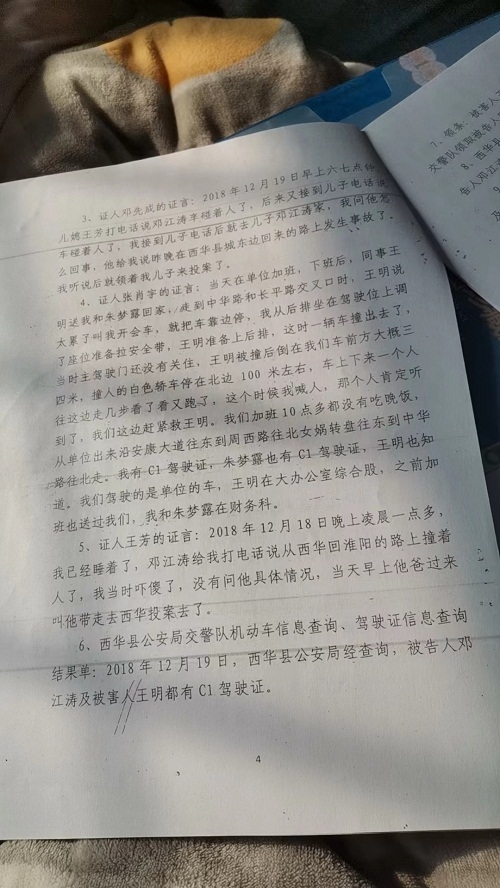 3、证人邓先成的证言：2018年12月19日早上六七点钟
儿媳王芳打电话说邓江涛车碰着人了，后来又接到儿子电话说
车碰着人了，我接到儿子电话后就去儿子邓江涛家，我问他怎
么回事，他给我说昨晚在西华县城东边回来的路上发生事故了。
我听说后就领着我儿子来投案了。
4、证人张肖宇的证言：当天在单位加班，下班后，同事王
明送我和朱梦露回家，走到中华路和长平路交叉口时，王明说
太累了叫我开会车，就把车靠边停，我从后排坐在驾驶位上调
了座位准备拉安全带，王明准备上后排，这时一辆车撞出去了，
当时主驾驶门还没有关住，王明被撞后倒在我们车前方大概三
四米，撞人的白色轿车停在北边 100 米左右，车上下来一个人
往这边走几步看了看又跑了，这个时候我喊人，那个人肯定听
到了，我们这边赶紧救王明。我们加班 10 点多都没有吃晚饭，
从单位出来沿安康大道往东到周西路往北女娲转盘往东到中华
路往北走。我有 C1 驾驶证，朱梦露也有 C1 驾驶证，王明也知
道。我们驾驶的是单位的车，王明在大办公室综合股，之前加
班也送过我们，我和朱梦露在财务科。
5、证人王芳的证言：2018 年 12 月 18 日晚上凌晨一点多，
我已经睡着了，邓江涛给我打电话说从西华回淮阳的路上撞着
人了，我当时吓傻了，没有问他具体情况，当天早上他爸过来
叫他带走去西华投案去了。
6、西华县公安局交警队机动车信息查询、驾驶证信息查询
结果单：2018 年 12 月 19 日，西华县公安局经查询，被告人邓
江涛及被害人王明都有 C1 驾驶证。
4
7、领条：被害人
交警队领取被告人
8、西华县
告人邓江